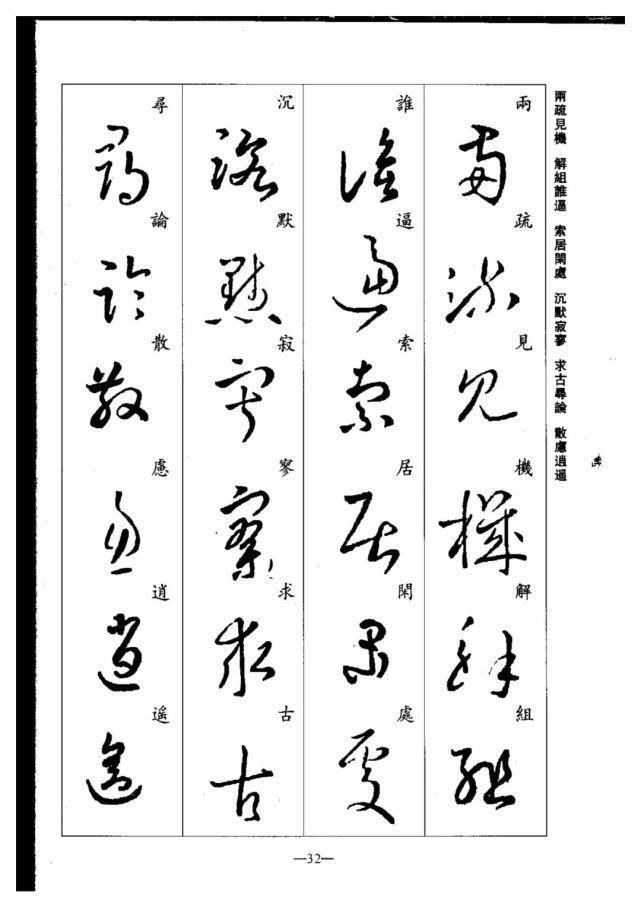 兩疏見機　解組誰逼　索居閑處　沉默寂寥　求古尋論　散慮逍遥
兩疏見機解組
誰逼索居閑處
沉默寂寥求古
尋論散慮逍遥
—32—